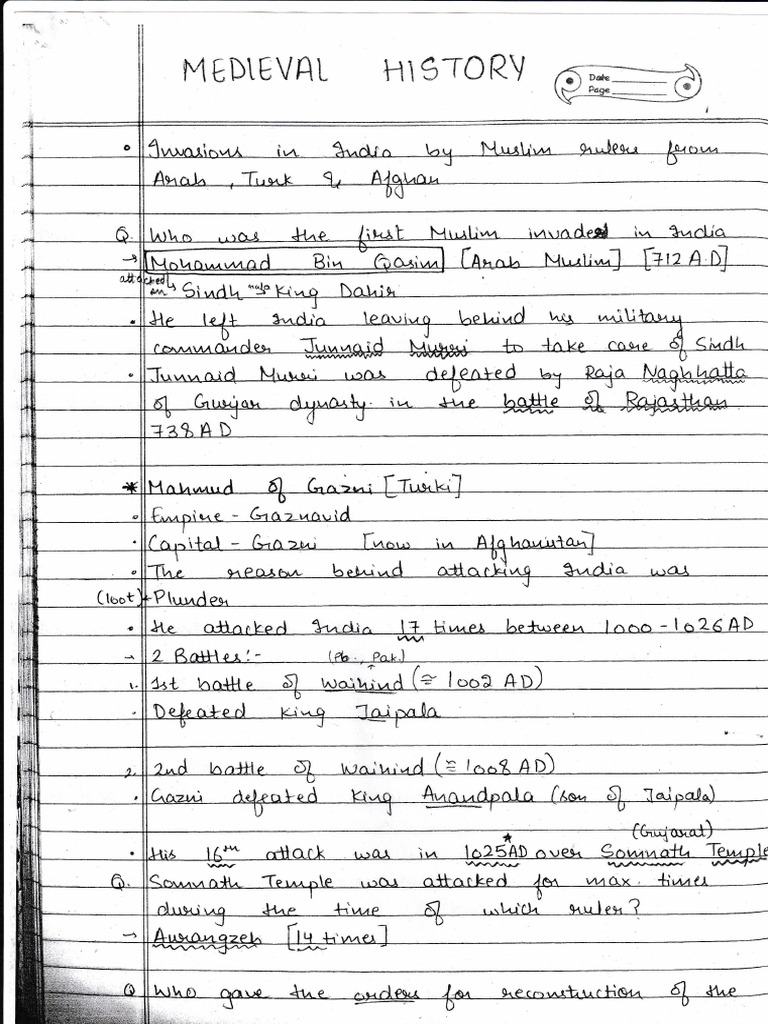 MEDIEVAL HISTORY
Date
Page
• Invasions in India by Muslim rulers from
Arab, Turk & Afghan
Q. Who was the first Muslim invader in India
→ Mohammad Bin Qasim [Arab Muslim] [712 A.D]
attacked on → Sindh King Dahir
• He left India leaving behind his military
commander Junnaid Murri to take care of Sindh
• Junnaid Murri was defeated by Raja Naghhatta
of Gurjar dynasty in the battle of Rajasthan
738 AD
* Mahmud of Gazni [Turki]
• Empire - Gaznavid
• Capital - Gazni [now in Afghanistan]
• The reason behind attacking India was
(loot) ← Plunder
• He attacked India 17 times between 1000 - 1026 AD
→ 2 Battles:- (Pb., Pak.)
1. 1st battle of Waihind (≅ 1002 AD)
• Defeated king Jaipala
2. 2nd battle of Waihind (≅ 1008 AD)
• Gazni defeated king Anandpala (son of Jaipala)
(Gujarat)
• His 16th attack was in 1025AD* over Somnath Temple
Q. Somnath Temple was attacked for max. times
during the time of which ruler?
→ Aurangzeb [14 times]
Q Who gave the orders for reconstruction of the